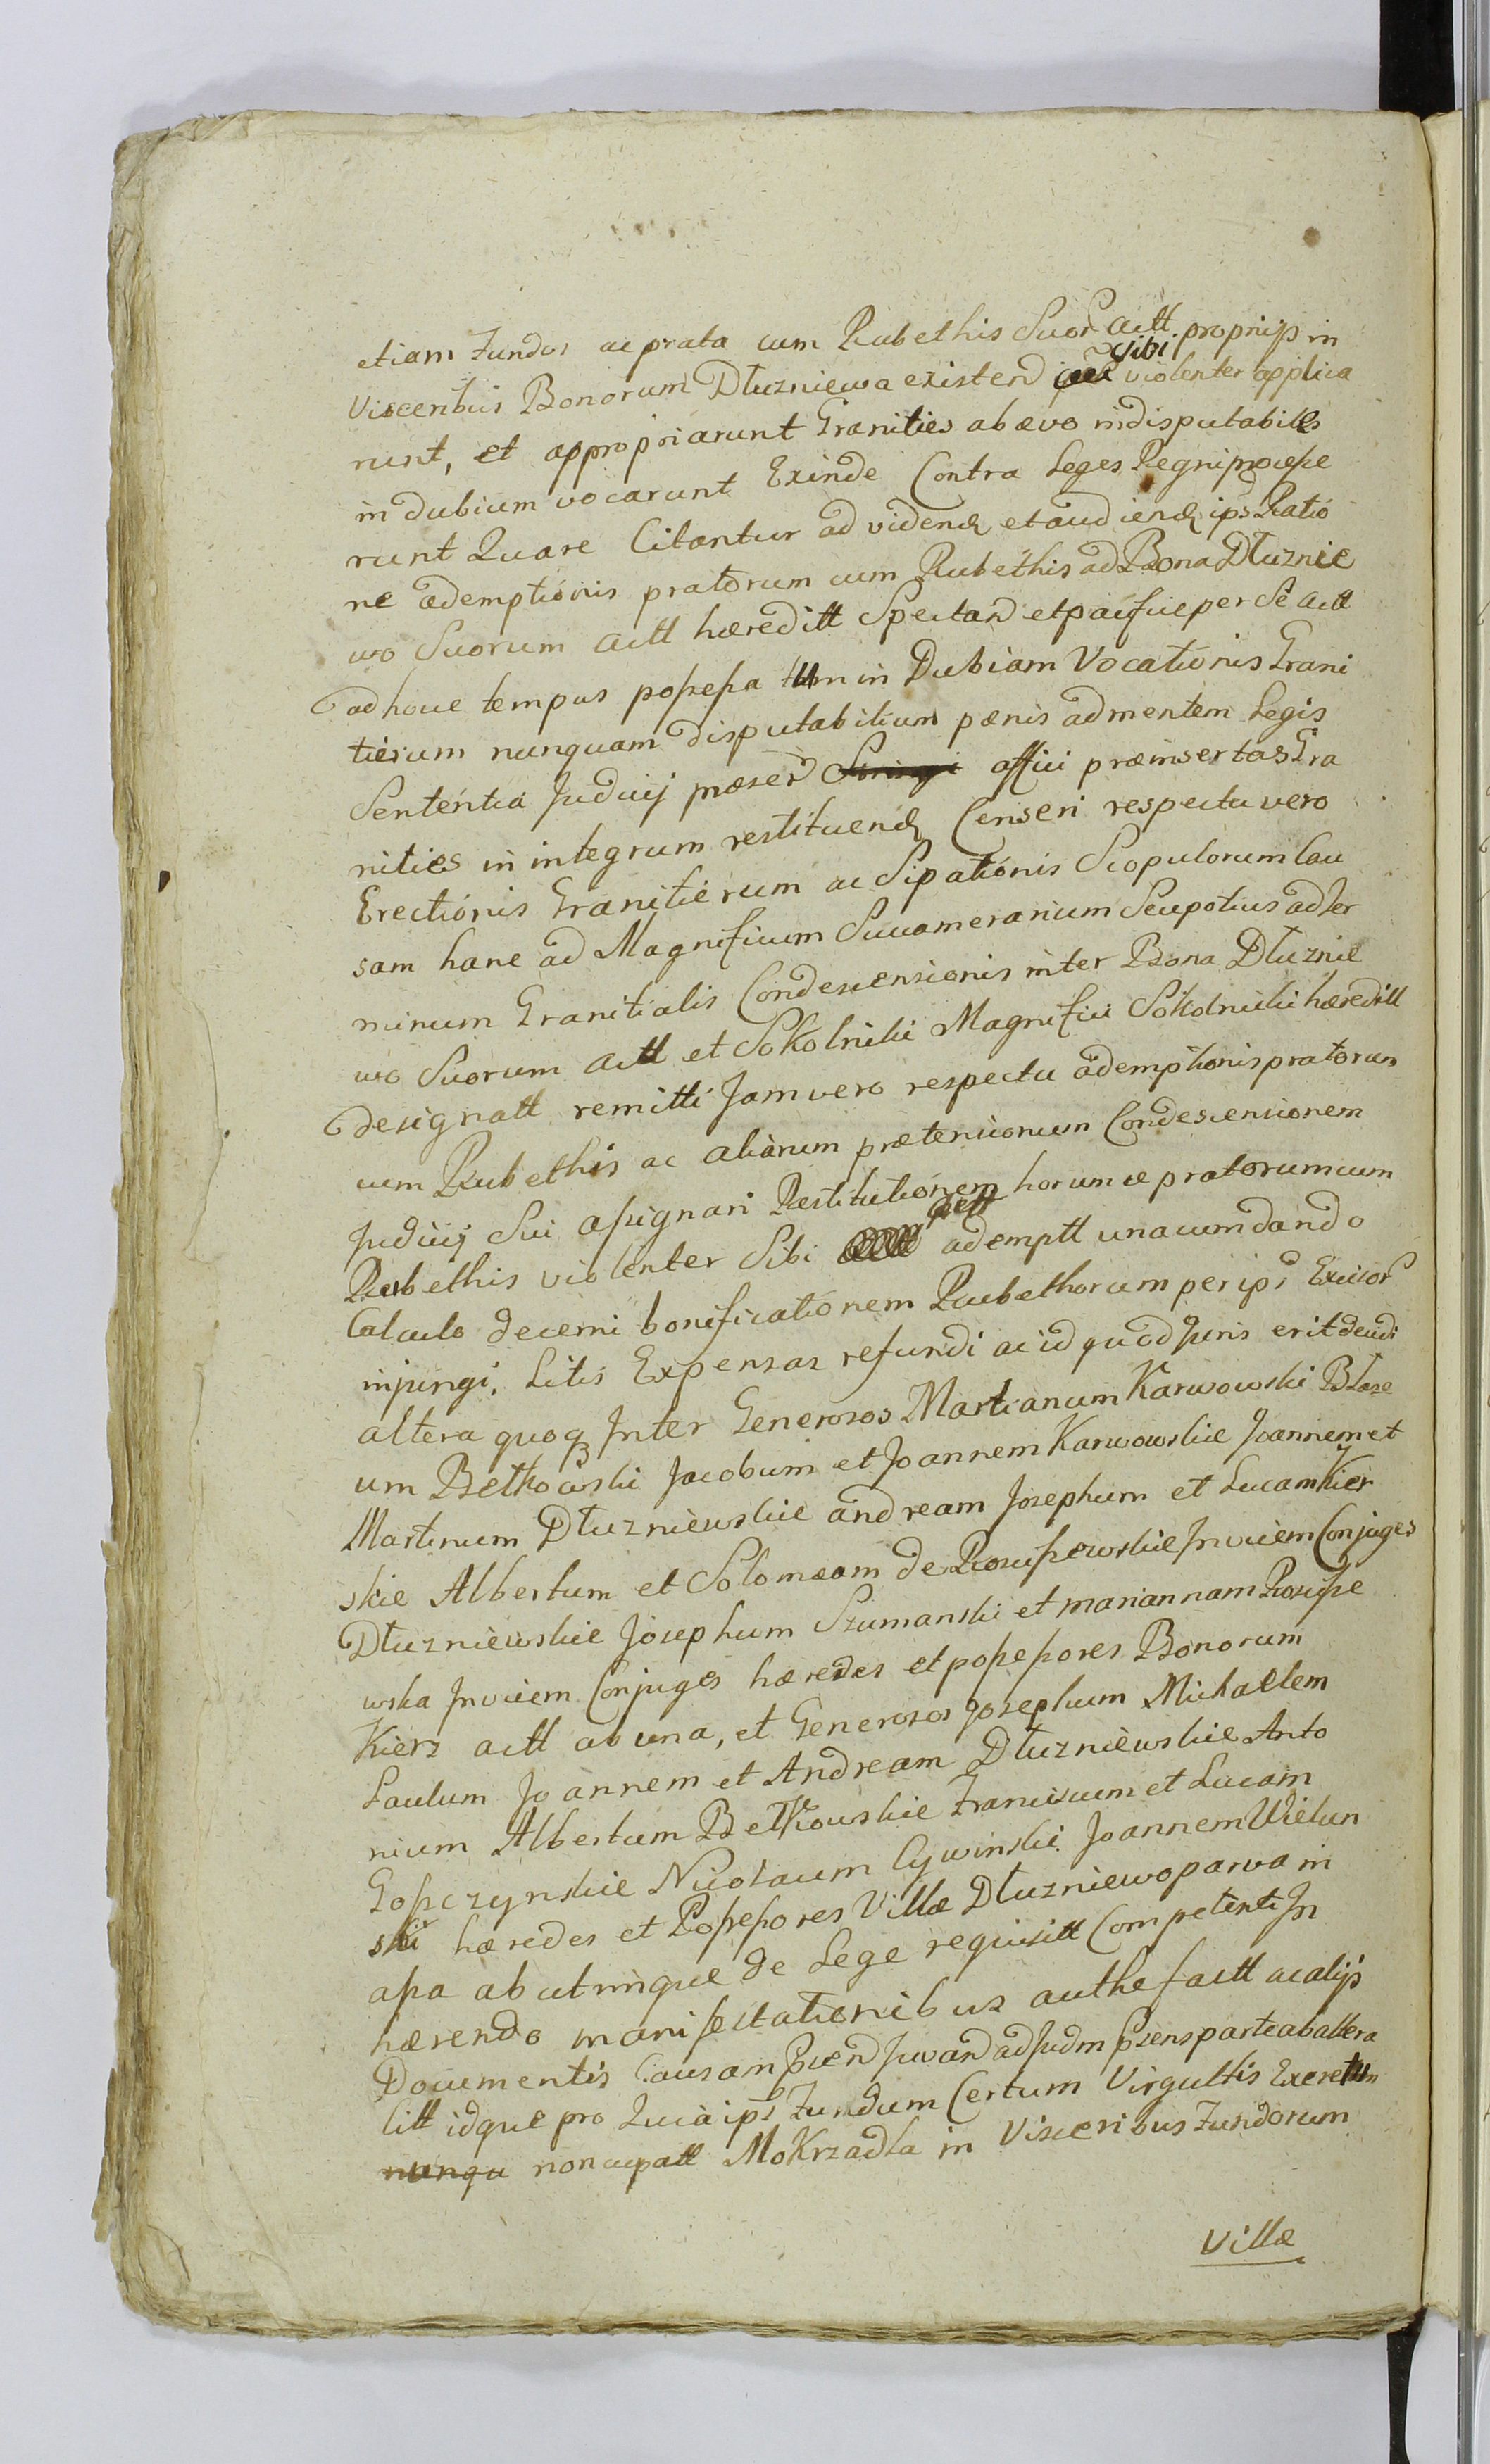 etiam Fundos ac prata cum Rubethis Suor Actt propriis in
Visceribus Bonorum Dłuzniewa existend Sibi violenter applica
runt, et appropriarunt Granities ab ævo indisputabiles
in dubium vocarunt Exinde Contra Leges Regni processe
runt Quare Citantur ad videnḍ et audienḍ ips Ratio
ne ademptionis pratorum cum Rubethis ad Bona Dłuznie
wo Suorum Actt hæreditt Spectand et pacifice per Se Actt
ad hocce tempus possessa tum in Dubiam Vocationis Grani
tierum nunquam disputabilium pænis ad mentem Legis
Sententia Judicij præsed Stringi affici præinsertas Gra
nities in integrum restituenḍ Censeri respectu vero
Erectionis Granitierum ac Sipationis Scopulorum Cau
sam hanc ad Magnificum Succamerarium Seu potius ad Ter
minum Granitialis Condescensionis inter Bona Dłuznie
wo Suorum Actt et Sokolniki Magnifici Sokolnicki hæreditt
designatt remitti Jam vero respectu ademptionis pratorum
cum Rubethis ac aliarum prætensionum Condescensionem
Judicij Sui assignari Restitutionem horumce pratorum cum
Rubethis violenter Sibi Actt ademptt una cum dando
Calculo decerni bonificationem Rubethorum per ips Excisor
injungi, Litis Expensas refundi ac id quod Juris erit decidi
altera quoq Inter Generosos Martianum Karwowski Blase
um Betkowski Jacobum et Joannem Karwowskie Joannem et
Martinum Dłuzniewskie Andream Josephum et Lucam Kier
skie Albertum et Solomeam de Rosciszewskie Invicem Conjuges
Dłuzniewskie Josephum Szumanski et mariannam Roscisze
wska Invicem Conjuges hæredes et possessores Bonorum
Kierz Actt ab una, et Generosos Josephum Michaelem
Paulum Joannem et Andream Dłuzniewskie Anto
nium Albertum Betkowskie Franciscum et Lucam
Gosczynskie Nicolaum Cywinski Joannem Wielun
ski hæredes et Possessores Villæ Dłuzniewo parva in
assa ab utrinque de Lege requisitt Competenti In
hærendo manifestationibus authe factt ac alijs
Documentis Causam ad Judm psens parte ab altera
Citt idque pro Quia ips Fundum Certum Virgultis Excretum
nunqu noncupatt MoKrzadla in Visceribus Fundorum
Villæ